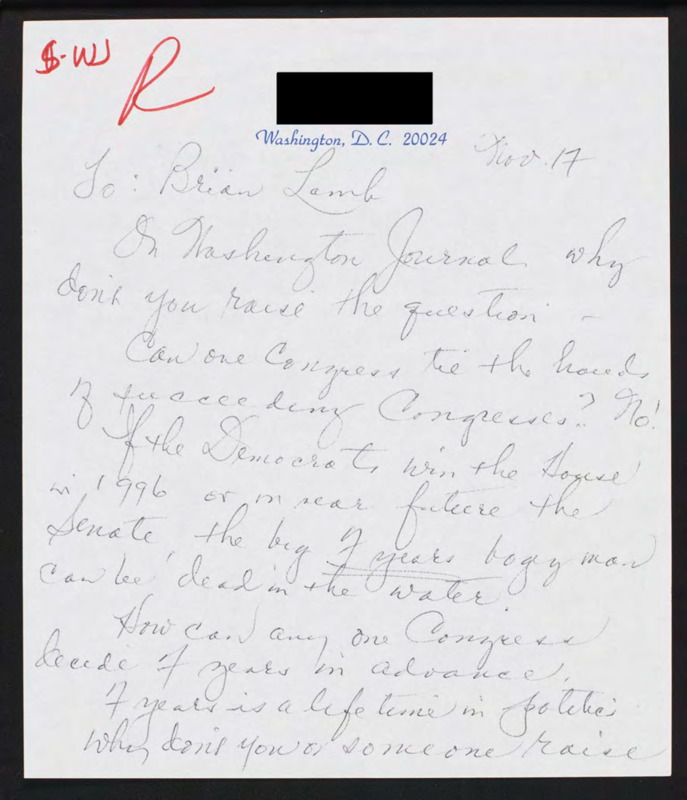 $-W
R
Washington, D.C. 20024
Nov. 17
To: Brian Lamb
On Washington Journal why
don't you raise the question -
Can one Congress tie the hands
of succeeding Congresses? No!
If the Democrats win the House
in 1996 or in near future the
Senate, the big 7 years bogy man
can be dead in the water.
How can any one Congress
decide 7 years in advance.
7 years is a life time in politics
Why don't you or someone raise